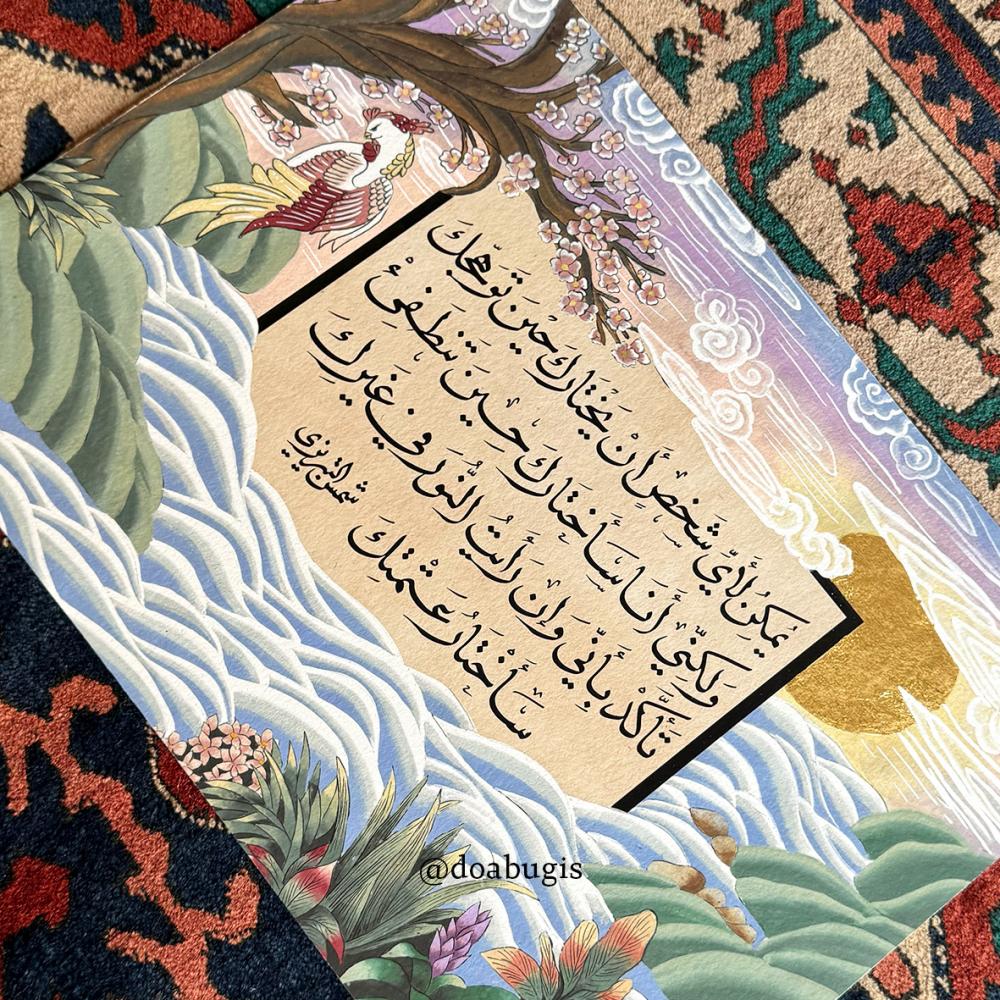 يُمكِنُ لِأَيِّ شَخصٍ أَنْ يَختَارَكَ حِينَ تَوَهُّجِكَ
وَلَكِنِّي أَنَا سَأَختَارُكَ حِينَ تَنطَفِئُ
تَأَكَّدْ بِأَنِّي وَإِنْ رَأَيتُ النُّورَ فِي غَيرِكَ
سَأَختَارُ عَتْمَتِكَ
شمس التبريزي
@doabugis